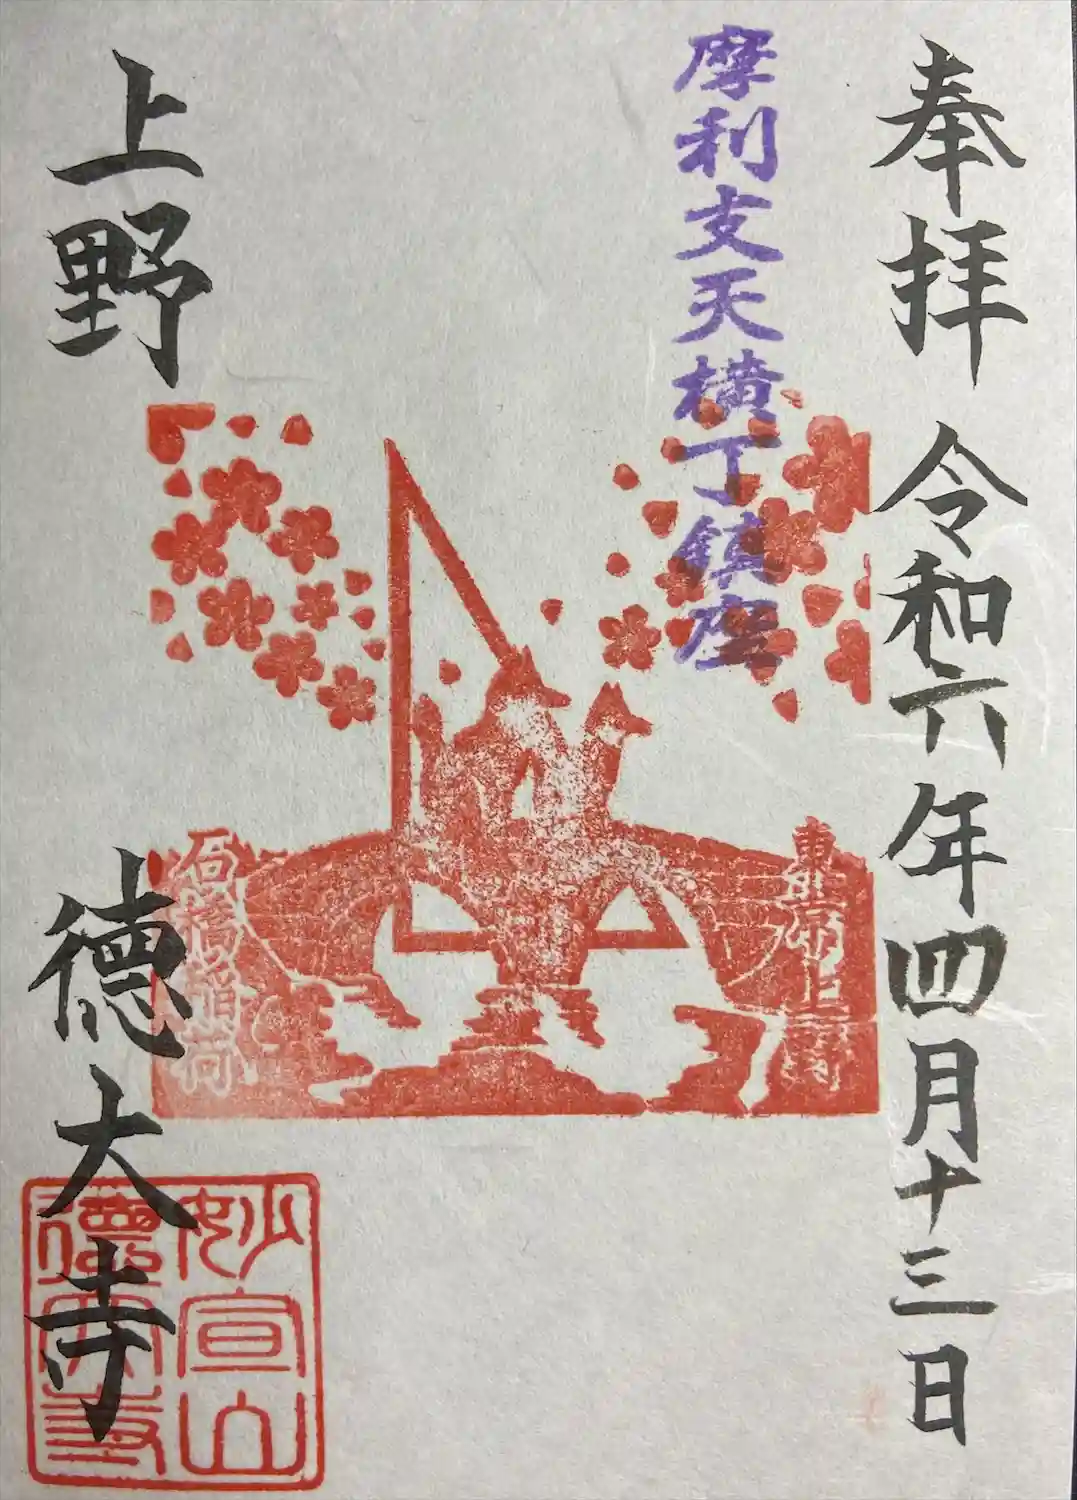 奉拝 令和六年四月十三日
摩利支天横丁鎮座
石橋稲荷
上野 徳大寺
妙宣山
徳大寺